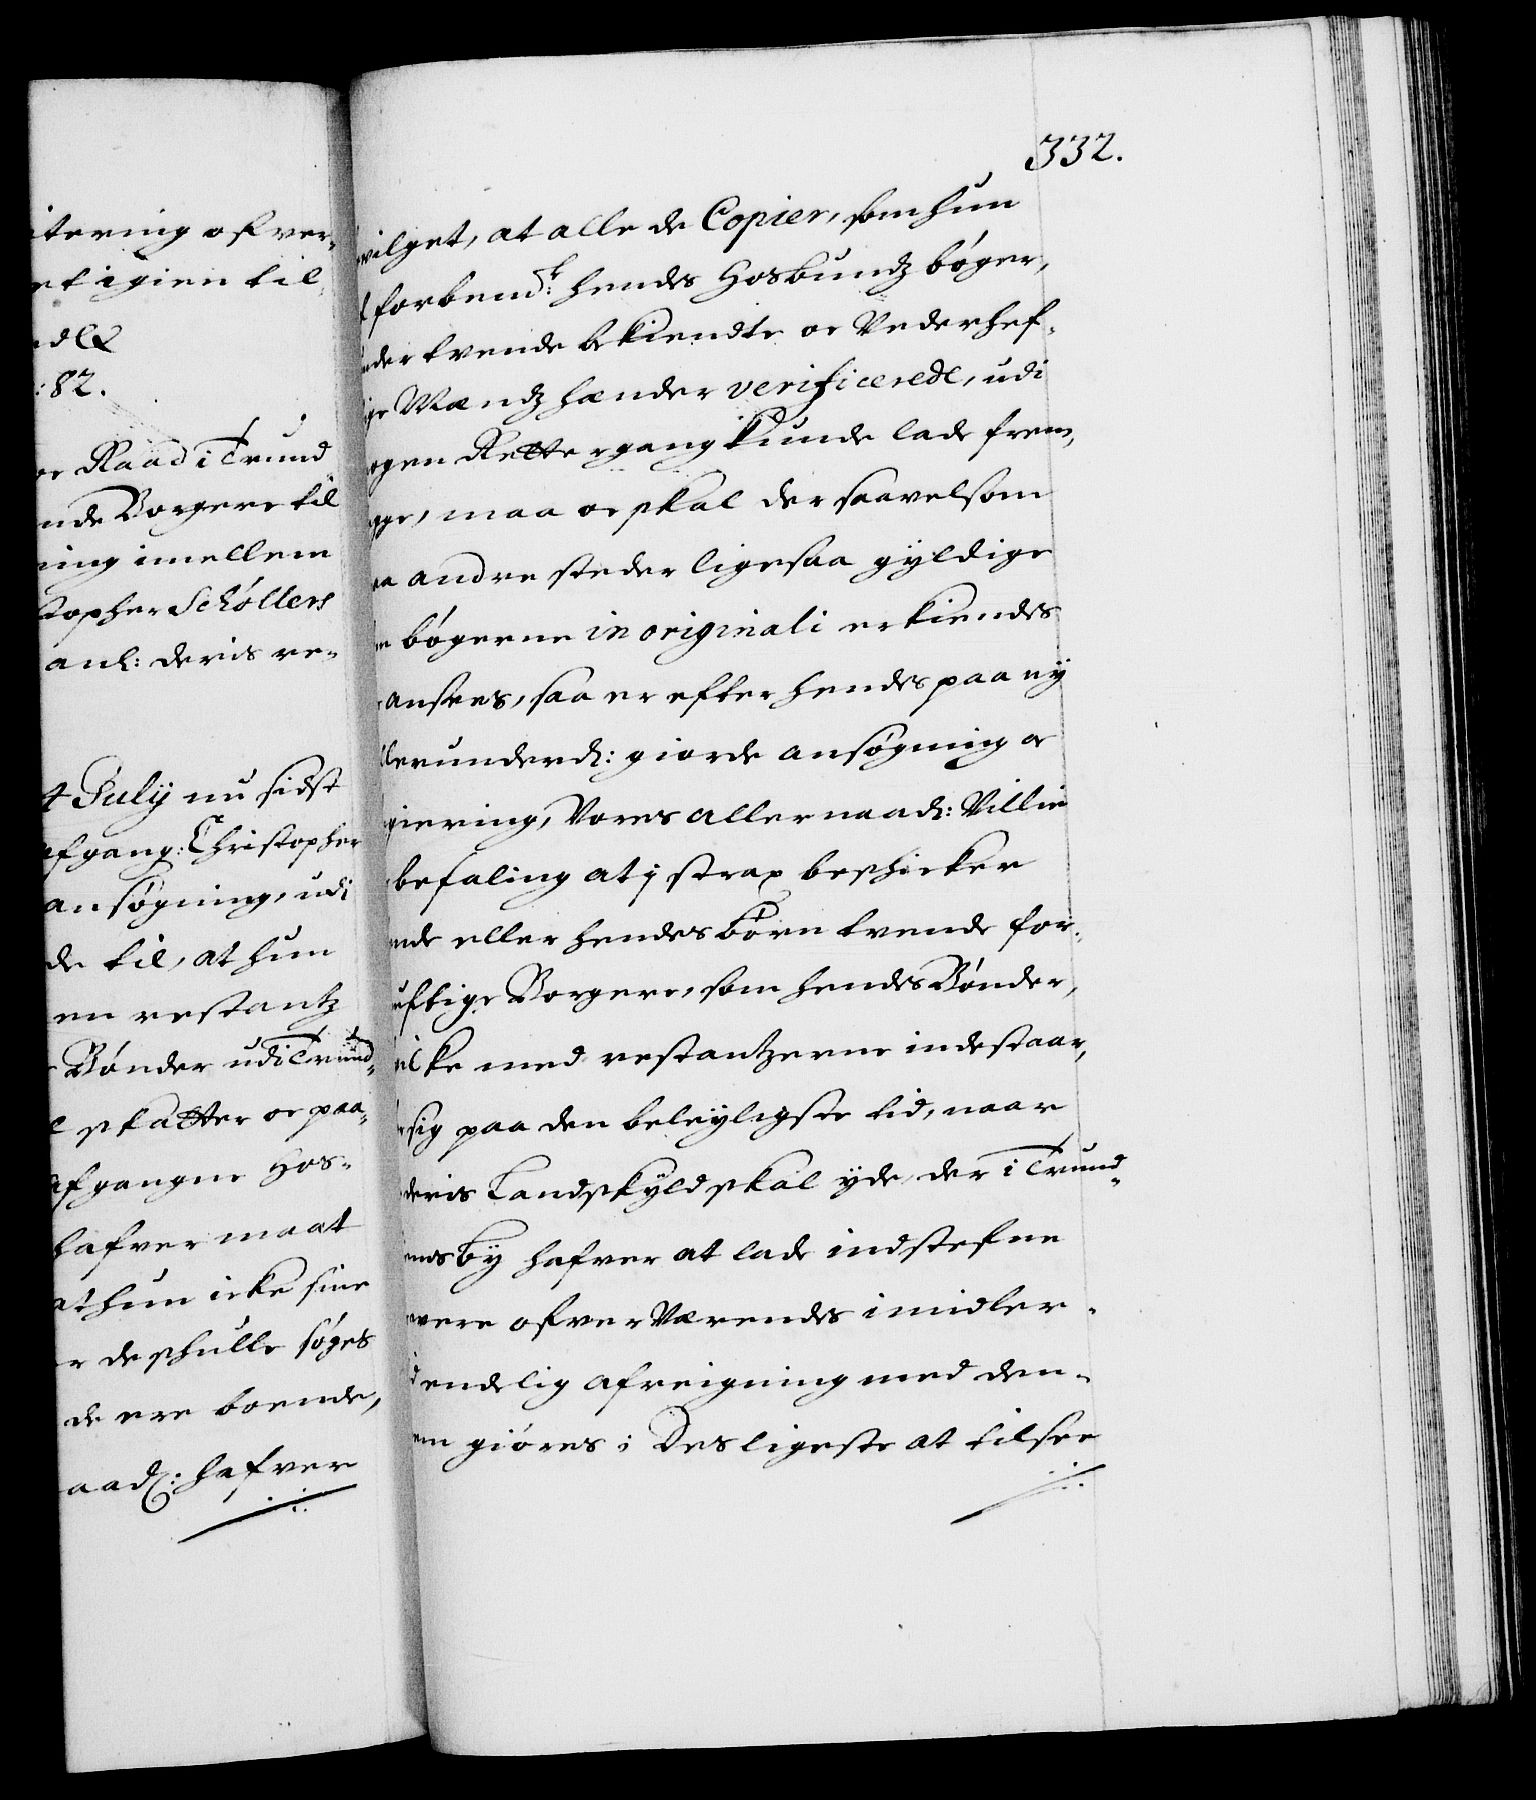 itering ofver-
et igien til
:82.
oc Raad i Trund
nde Borgere til
ning imellem
topher Schøllers
anl: deris re-
4 July nu sidst
afgang: Christopher
ansøgning, udi
de til, at hun
en restantz
Bønder udi Trund-
l skatter oc paa-
afgangne Hos-
hafver maat
at hun icke sine
r de schulle søges
de ere boende,
aad: hafver
332.
vilget, at alle de Copier, som hun
forbemt: hendes Hosbundz bøger,
nder tvende bekiendte oc Vederhef-
ige Mændz hænder verificerede, udi
ogen Rettergang kunde lade frem-
gge, maa oc skal der saavelsom
aa andre steder ligesaa gyldige
m bøgerne in originali erkiendes
ansees, saa er efter hendes paa ny
llerunderd: giorde ansøgning oc
giering, Vores allernaad: Villie
befaling at i strax beschicker
ende eller hendes børn tvende for-
uftige Borgere, som hendes Bønder,
ilke med restantzerne indestaar,
sig paa den beleyligste tid, naar
deris Landskyld skal yde, der i Trund-
ems by hafver at lade indstefne
vere ofver Værendes imidler-
d endelig afreigning med den-
em giøres; Desligeste at tilsee